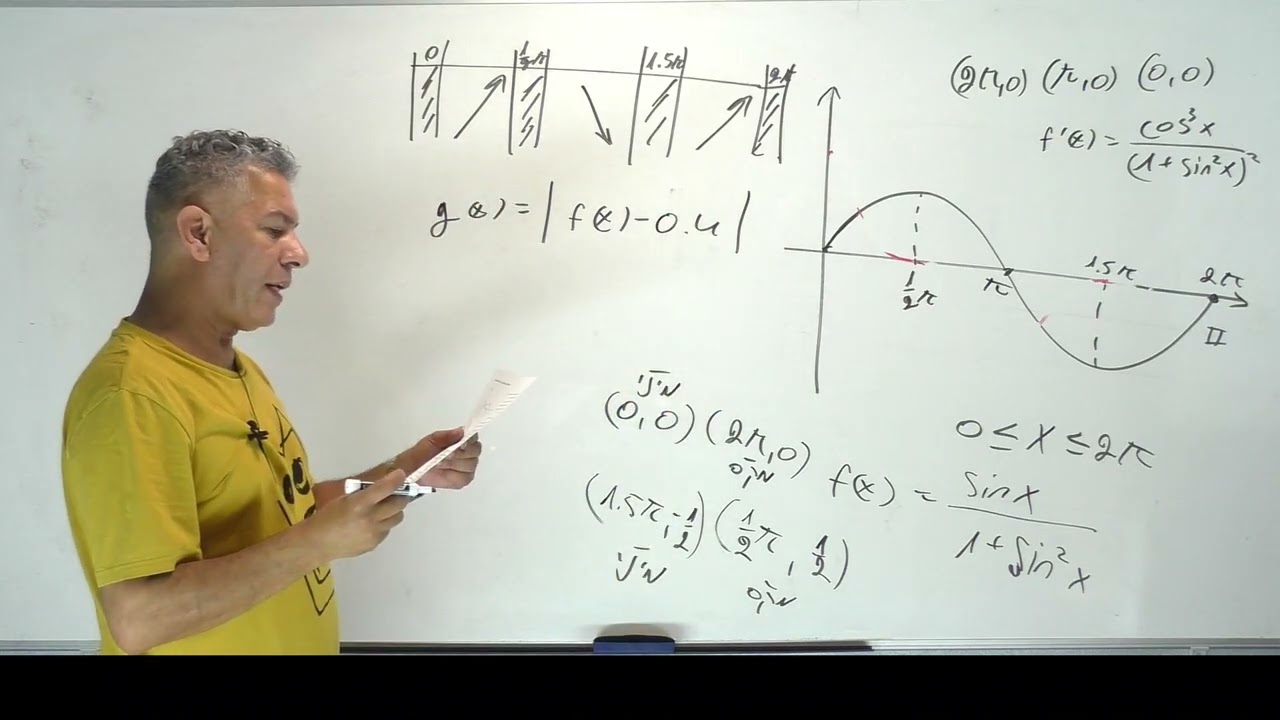 0 ½π 1.5π 2π
(2π,0) (π,0) (0,0)
f'(x) = cos³x / (1 + sin²x)²
g(x) = | f(x) - 0.4 |
½π
π
1.5π
2π
II
מינ'
(0,0) (2π,0)
מקס'
(1.5π, -½) (½π, ½)
מינ' מקס'
0 ≤ x ≤ 2π
f(x) = sinx / 1 + sin²x